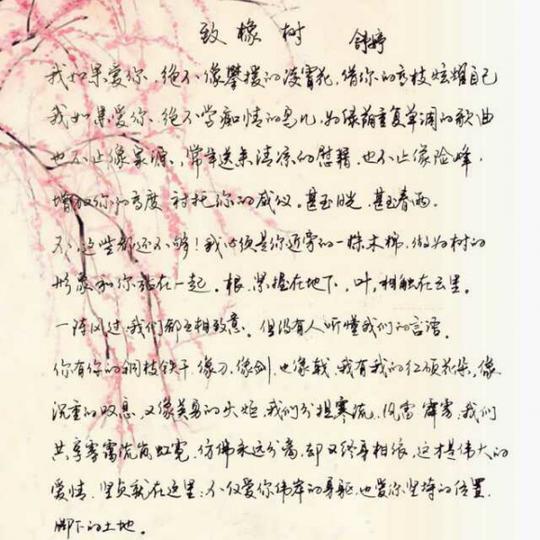 致橡树 舒婷
我如果爱你,绝不像攀援的凌霄花,借你的高枝炫耀自己
我如果爱你,绝不学痴情的鸟儿,为绿荫重复单调的歌曲
也不止像泉源,常年送来清凉的慰藉,也不止像险峰,
增加你的高度 衬托你的威仪。甚至日光,甚至春雨。
不,这些都还不够!我必须是你近旁的一株木棉,做为树的
形象和你站在一起。根,紧握在地下,叶,相触在云里。
一阵风过,我们都互相致意。但没有人听懂我们的言语。
你有你的铜枝铁干,像刀,像剑,也像戟,我有我的红硕花朵,像
沉重的叹息,又像英勇的火炬,我们分担寒流,风雷 霹雳,我们
共享雾霭流岚虹霓,仿佛永远分离,却又终身相依,这才是伟大的
爱情,坚贞就在这里:不仅爱你伟岸的身躯,也爱你坚持的位置,
脚下的土地。